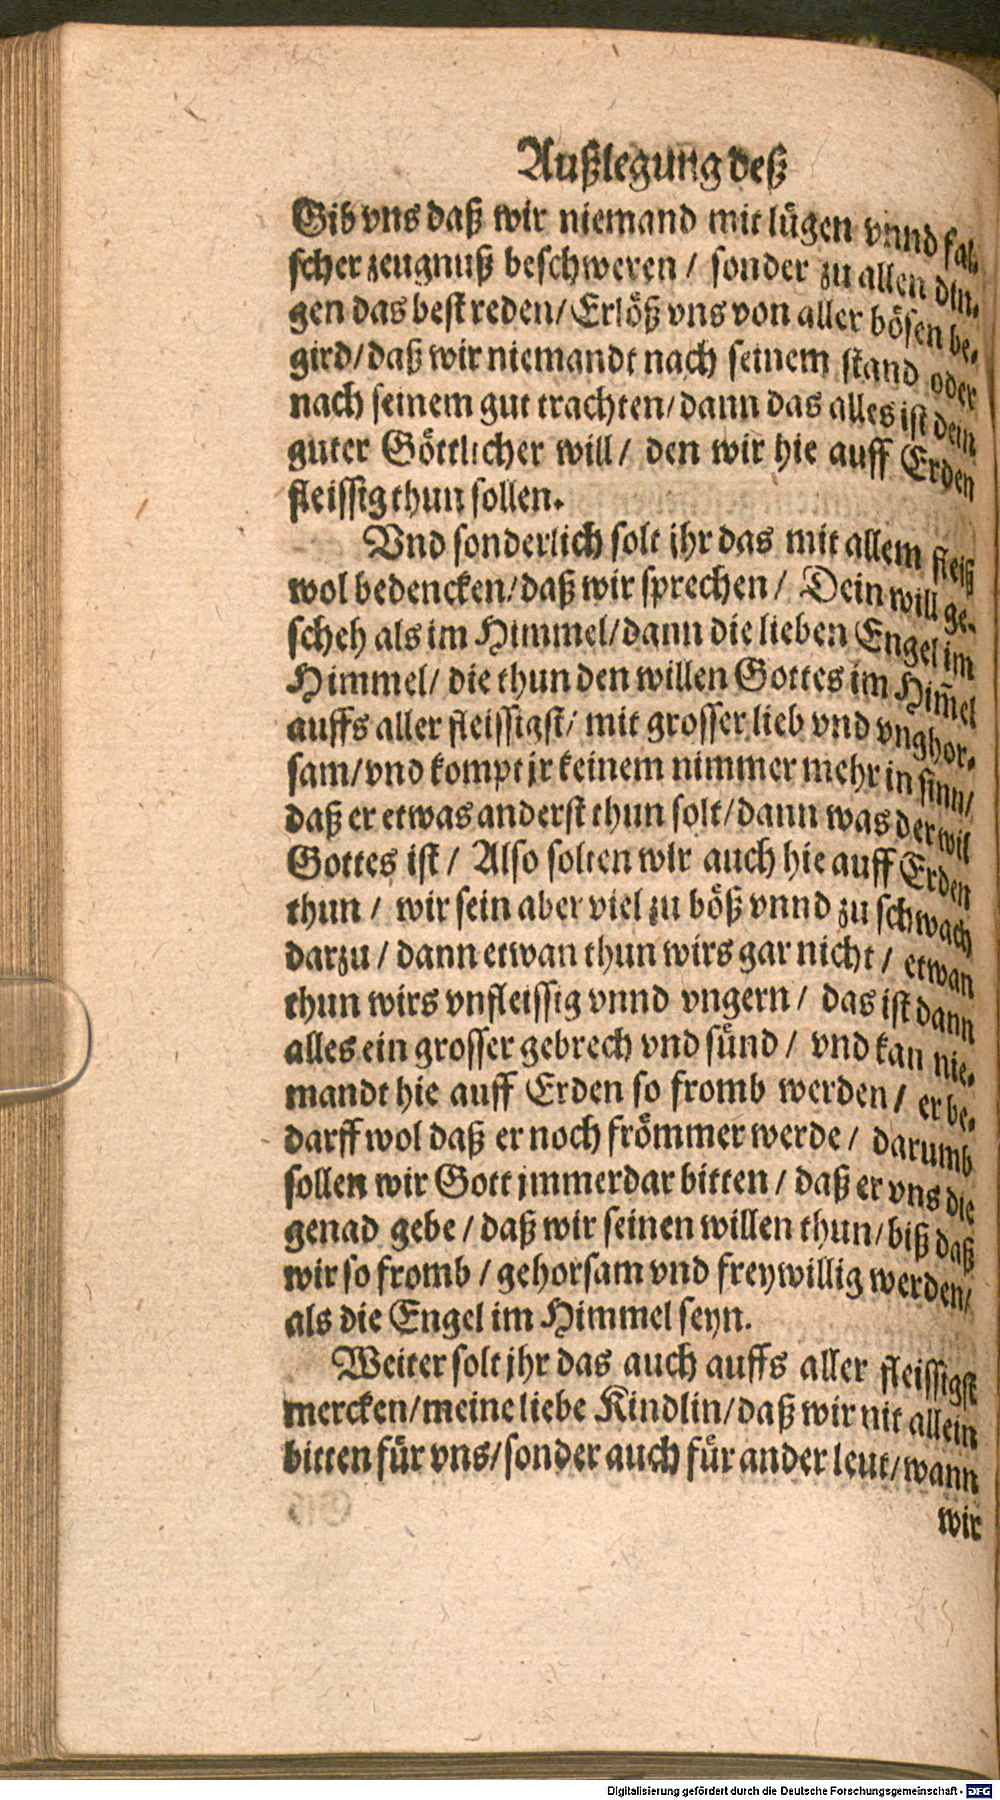 Außlegung deß
Gib vns daß wir niemand mit lügen vnnd fal-
scher zeugnuß beschweren / sonder zu allen din-
gen das best reden / Erlöß vns von aller bösen be-
gird / daß wir niemandt nach seinem stand oder
nach seinem gut trachten / dann das alles ist dein
guter Göttlicher will / den wir hie auff Erden
fleissig thun sollen.
Vnd sonderlich solt jhr das mit allem fleiß
wol bedencken / daß wir sprechen / Dein will ge-
scheh als im Himmel / dann die lieben Engel im
Himmel / die thun den willen Gottes im Him̃el
auffs aller fleissigst / mit grosser lieb vnd vnghor-
sam / vnd kompt jr keinem nimmer mehr in sinn /
daß er etwas anderst thun solt / dann was der wil
Gottes ist / Also solten wir auch hie auff Erden
thun / wir sein aber viel zu böß vnnd zu schwach
darzu / dann etwan thun wirs gar nicht / etwan
thun wirs vnfleissig vnnd vngern / das ist dann
alles ein grosser gebrech vnd sünd / vnd kan nie-
mandt hie auff Erden so fromb werden / er be-
darff wol daß er noch frömmer werde / darumb
sollen wir Gott jmmerdar bitten / daß er vns die
genad gebe / daß wir seinen willen thun / biß daß
wir so fromb / gehorsam vnd freywillig werden /
als die Engel im Himmel seyn.
Weiter solt jhr das auch auffs aller fleissigst
mercken / meine liebe Kindlin / daß wir nit allein
bitten für vns / sonder auch für ander leut / wann
wir
Digitalisierung gefördert durch die Deutsche Forschungsgemeinschaft - DFG